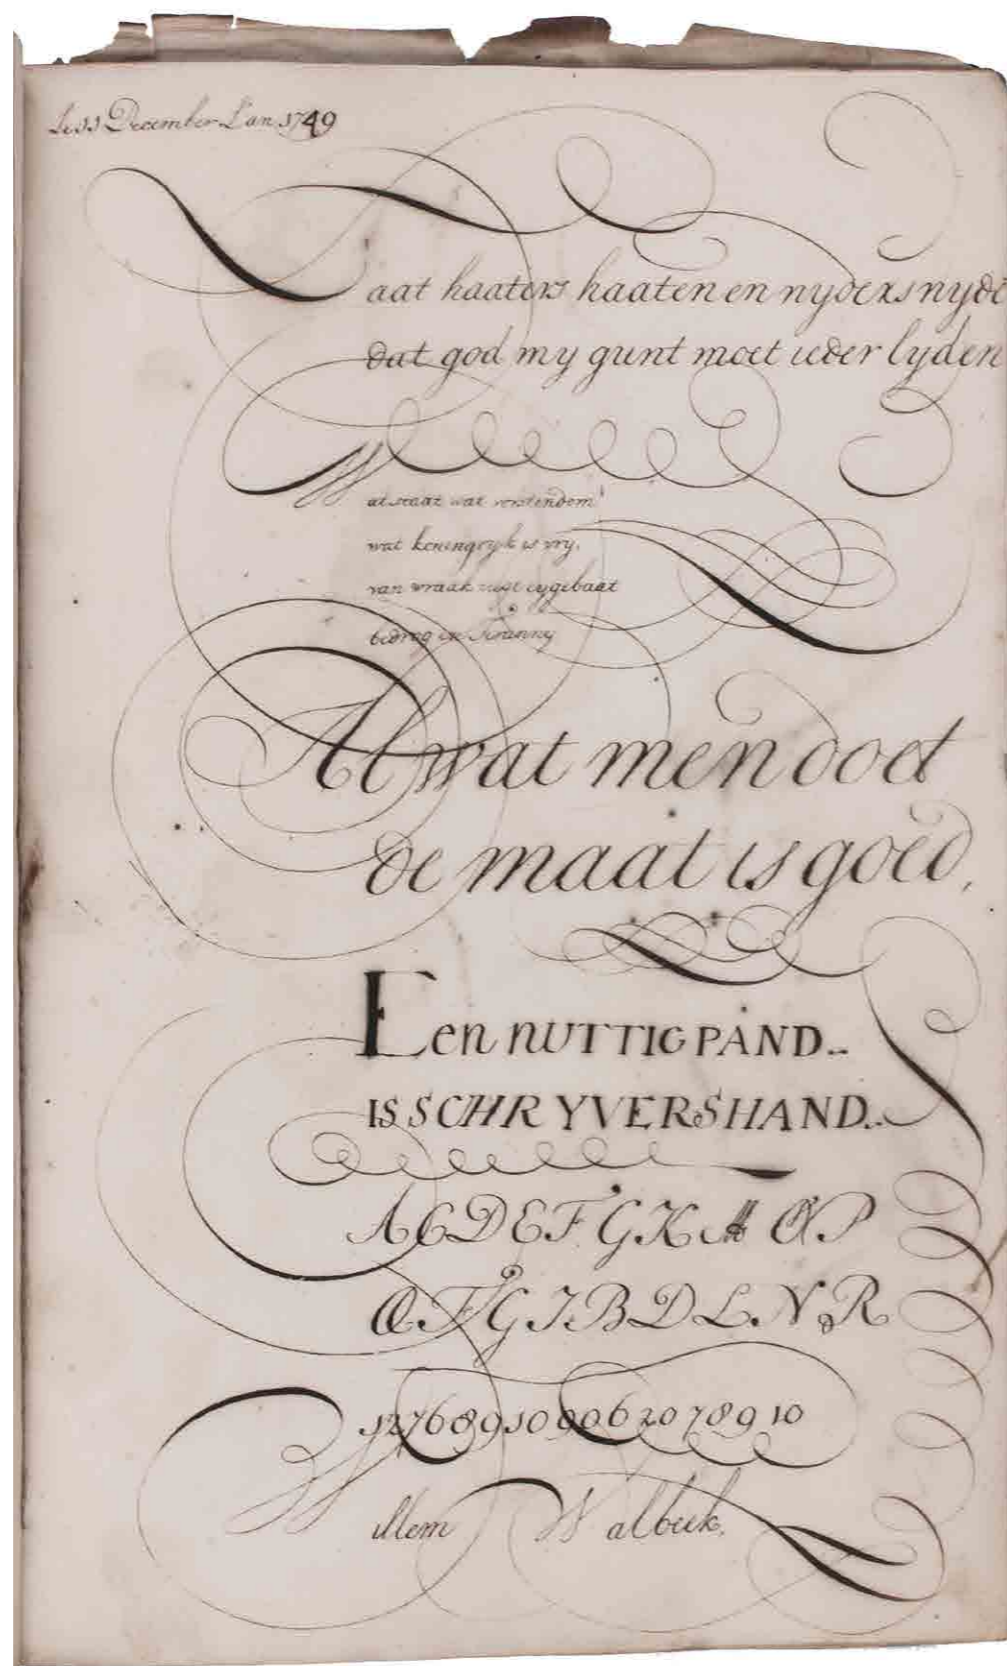 Le 11 December L'an 1749
Laat haaters haaten en nyders nyde
dat god my gunt moet ieder lyden
Wat staat wat vorstendom
wat koningryk is vry,
van wraak eygebaat
bedrog en Tiranny
Al wat men doet
de maat is goed,
Een NUTTIG PAND..
IS SCHRYVERSHAND..
A C D E F G K M O P
Q F G I B D L N R
12768910 906 20 78910
Willem Walbeek.